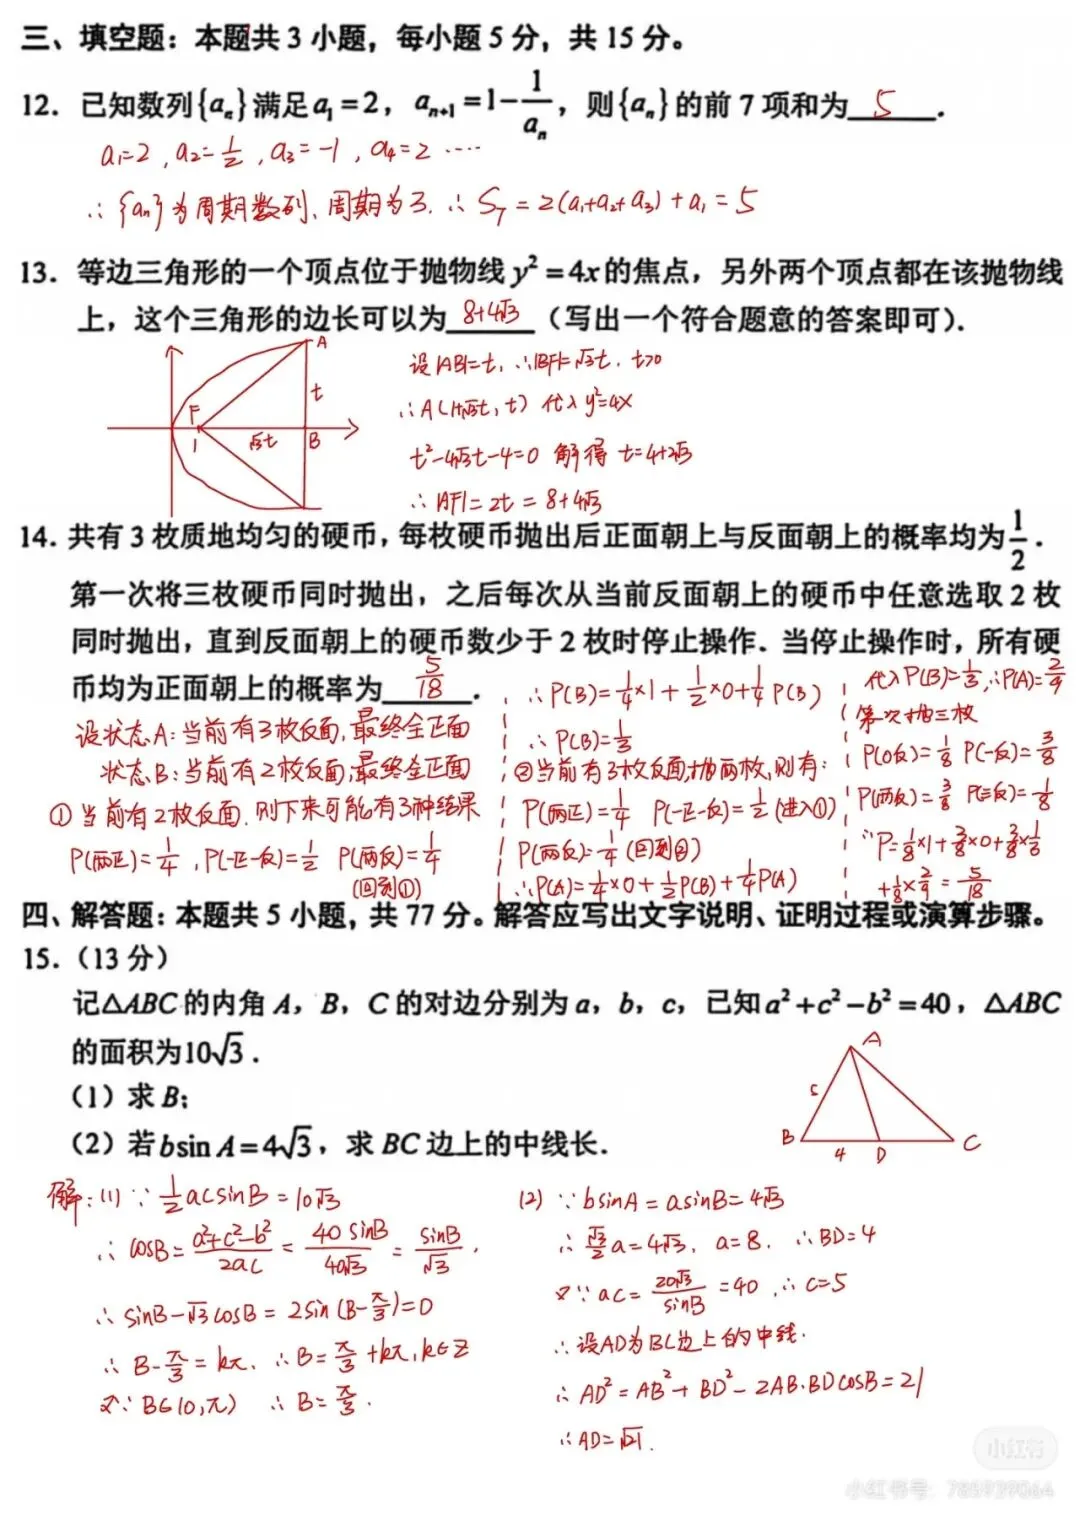 三、填空题：本题共 3 小题，每小题 5 分，共 15 分。
12．已知数列{aₙ}满足a₁=2，aₙ₊₁=1-1/aₙ，则{aₙ}的前 7 项和为 5 ．
a₁=2，a₂=1/2，a₃=-1，a₄=2 ····
∴{aₙ}为周期数列、周期为3. ∴S₇=2(a₁+a₂+a₃)+a₁=5
13．等边三角形的一个顶点位于抛物线y²=4x的焦点，另外两个顶点都在该抛物线
上，这个三角形的边长可以为 8+4√3 （写出一个符合题意的答案即可）．
A
t
F
1
√3t
B
设|AB|=t，∴|BF|=√3t，t>0
∴A(1+√3t, t) 代入y²=4x
t²-4√3t-4=0 解得 t=4+2√3
∴|AF|=2t=8+4√3
14．共有 3 枚质地均匀的硬币，每枚硬币抛出后正面朝上与反面朝上的概率均为1/2．
第一次将三枚硬币同时抛出，之后每次从当前反面朝上的硬币中任意选取 2 枚
同时抛出，直到反面朝上的硬币数少于 2 枚时停止操作．当停止操作时，所有硬
币均为正面朝上的概率为 5/18 ．
设状态A：当前有3枚反面，最终全正面
状态B：当前有2枚反面，最终全正面
①当前有2枚反面，则下来可能有3种结果
P(两正)=1/4，P(一正一反)=1/2 P(两反)=1/4
(回到①)
∴P(B)=1/4×1+1/2×0+1/4P(B)
∴P(B)=1/3
②当前有3枚反面，抛两枚，则有：
P(两正)=1/4 P(一正一反)=1/2(进入①)
P(两反)=1/4(回到②)
∴P(A)=1/4×0+1/2P(B)+1/4P(A)
代入P(B)=1/3，∴P(A)=2/9
第一次抛三枚
P(0反)=1/8 P(一反)=3/8
P(两反)=3/8 P(三反)=1/8
∴P=1/8×1+3/8×0+3/8×1/3
+1/8×2/9=5/18
四、解答题：本题共 5 小题，共 77 分。解答应写出文字说明、证明过程或演算步骤。
15．（13 分）
记△ABC的内角 A，B，C 的对边分别为 a，b，c，已知a²+c²-b²=40，△ABC
的面积为10√3．
（1）求 B；
（2）若bsinA=4√3，求 BC 边上的中线长．
A
5
B
4
D
C
解：(1) ∵1/2acsinB=10√3
∴cosB=(a²+c²-b²)/2ac=40sinB/40√3=sinB/√3.
∴sinB-√3cosB=2sin(B-π/3)=0
∴B-π/3=kπ，∴B=π/3+kπ，k∈Z
又∵B∈(0,π) ∴B=π/3.
(2) ∵bsinA=asinB=4√3
∴√3/2a=4√3，a=8. ∴BD=4
又∵ac=20√3/sinB=40，∴c=5
∴设AD为BC边上的中线.
∴AD²=AB²+BD²-2AB·BDcosB=21
∴AD=√21.
小红书
小红书号：785929064